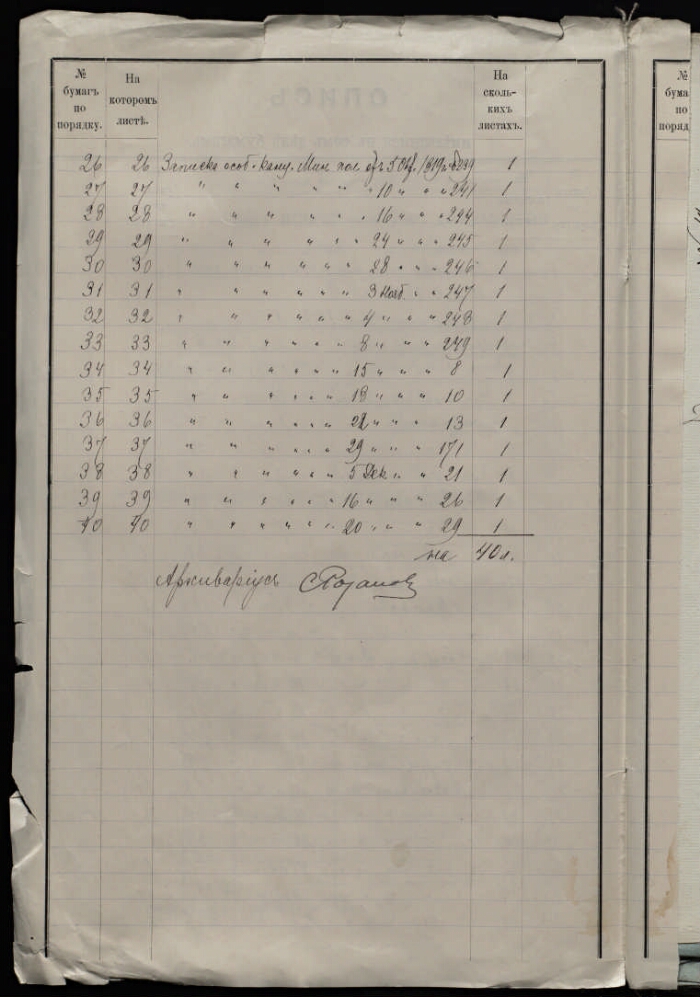 № бумагъ по порядку.
На которомъ листѣ.
На сколь-кихъ листахъ.
26 26 Записка особ. канц. Мин. пол. отъ 5 Окт. 1819 г. № 239 1
27 27 " " " " " " 10 " " " 241 1
28 28 " " " " " " 16 " " " 244 1
29 29 " " " " " " 24 " " " 245 1
30 30 " " " " " " 28 " " " 246 1
31 31 " " " " " " 3 Нояб. " " 247 1
32 32 " " " " " " 4 " " " 248 1
33 33 " " " " " " 8 " " " 249 1
34 34 " " " " " " 15 " " " 8 1
35 35 " " " " " " 18 " " " 10 1
36 36 " " " " " " 22 " " " 13 1
37 37 " " " " " " 29 " " " 171 1
38 38 " " " " " " 5 Дек. " " 21 1
39 39 " " " " " " 16 " " " 26 1
40 40 " " " " " " 20 " " " 29 1
на 40 л.
Архиваріусъ
№ бума по порядку